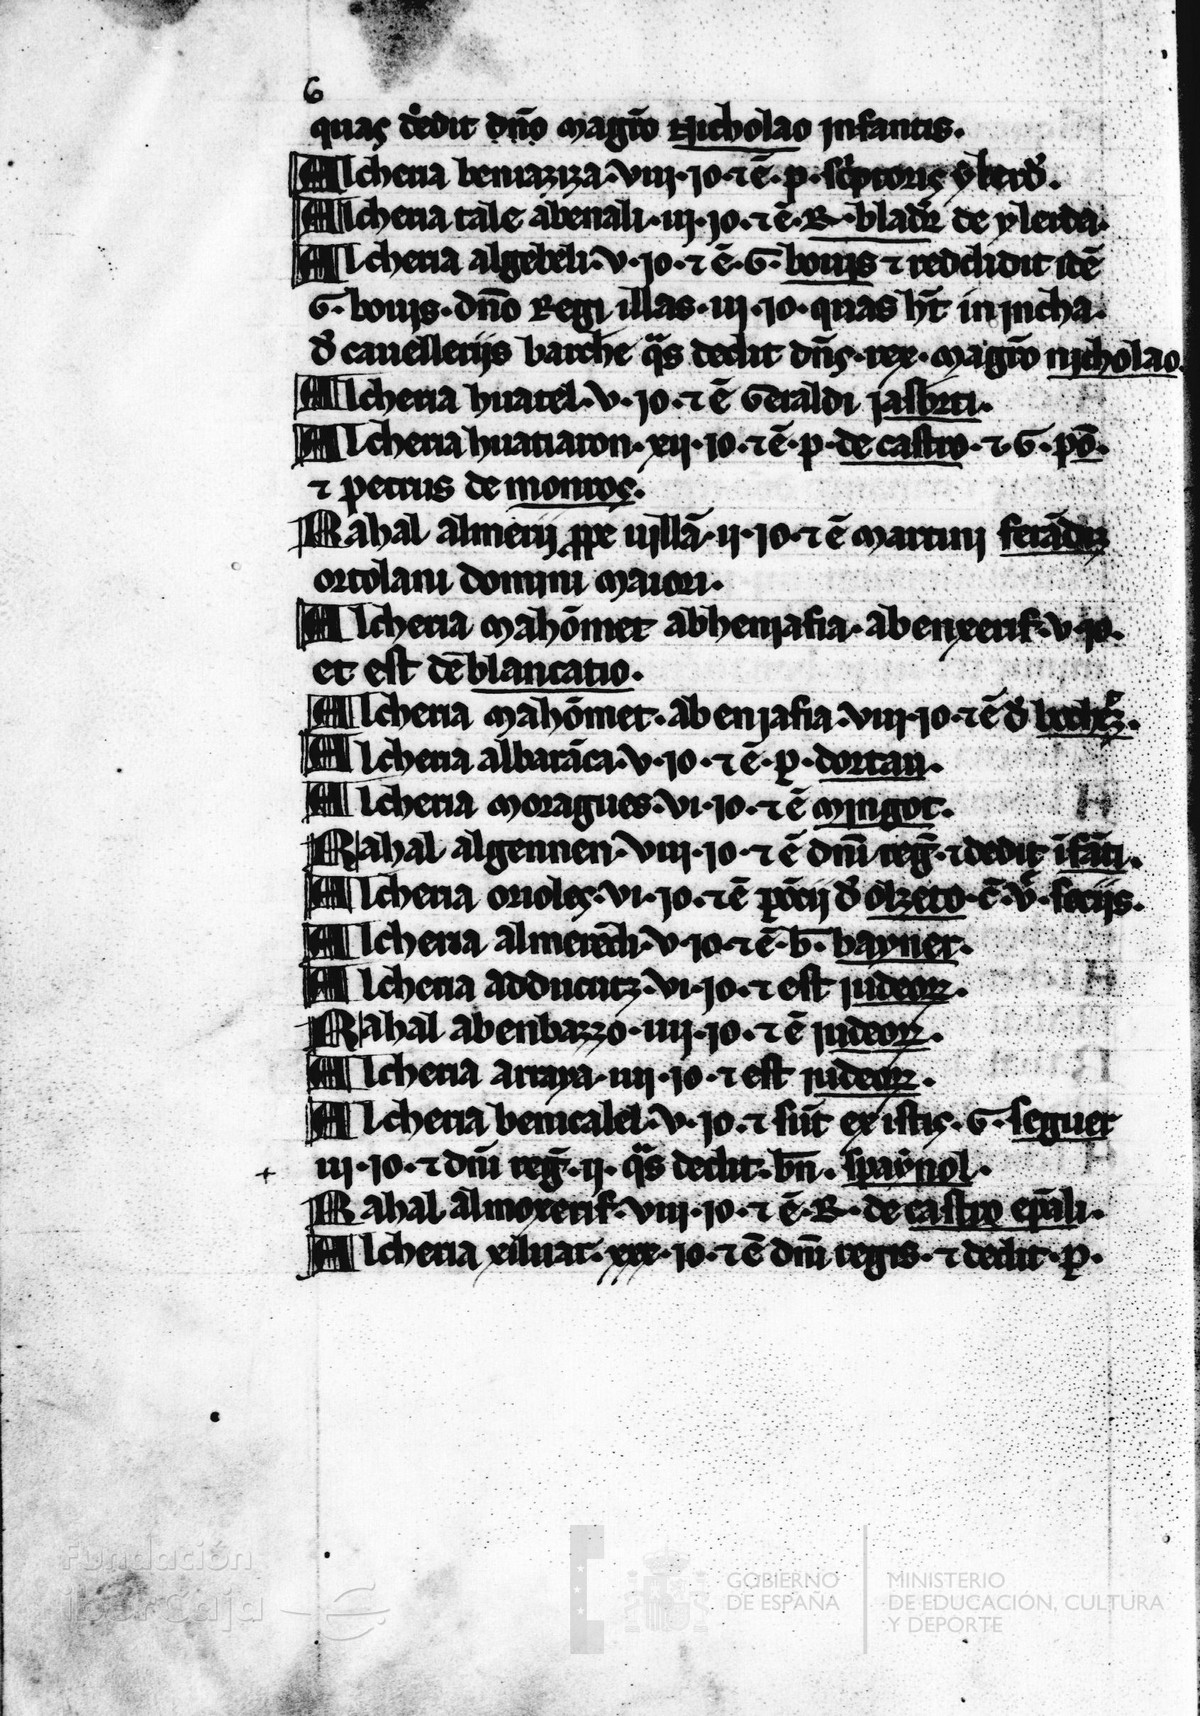 6
quas dedit dño magr̃o Nicholao infantis.
Alcheria beniaziza·viii·io·⁊ ẽ·p· sc̃ptoris ylerd̃.
Alcheria tale abenali·iii·io·⁊ ẽ·R· blad̃ de ylerda.
Alcheria algebeli·v·io·⁊ ẽ·G·bouis ⁊ reddidit idẽ
G·bouis·dño Regi illas·iii·io·quas ht̃ in incha·
d̃ cauellerijs barch̃e q̃s dedit dñs·rex·magr̃o nicholao.
Alcheria huatel·v·io·⁊ ẽ Geraldi jasbrti.
Alcheria huatiaron·xii·io·⁊ ẽ·p·de castro·⁊·G·põ.
⁊ petrus de montros.
Rahal almerij ꝓpe uillã·ii·io·⁊ ẽ martini ferãdiz
ortolani domini maiori.
Alcheria mahõmet abhenjafia·abenxerif·v·io.
et est de blancatio.
Alcheria mahõmet·abenjafia·viii·io·⁊ ẽ d̃
Alcheria albarãca·v·io·⁊ ẽ·p·dortan.
Alcheria moragues·vi·io·⁊ ẽ mingot.
Rahal algennen·viii·io·⁊ ẽ dñi reg̃·⁊ dedit ĩfãti.
Alcheria orioles·vi·io·⁊ ẽ d̃ olzeto·
Alcheria almerech·v·io·⁊ ẽ·b̃·bayner.
Alcheria adducutz·vi·io·⁊ est iudeoꝝ.
Rahal abenbazzo·iiii·io·⁊ ẽ iudeoꝝ.
Alcheria arraya·iiii·io·⁊ est iudeoꝝ.
Alcheria benicalel·v·io·⁊ sũt ex istis·G·seguer
+ iii·io·⁊ dñi reg̃·ii·q̃s dedit·bñ·spaynol.
Rahal almoxerif·viii·io·⁊ ẽ·R·de castro ep̃ali.
Alcheria xiluar·xxx·io·⁊ ẽ dñi regis·⁊ dedit·p·
Fundación
iberCaja
GOBIERNO
DE ESPAÑA
MINISTERIO
DE EDUCACIÓN, CULTURA
Y DEPORTE